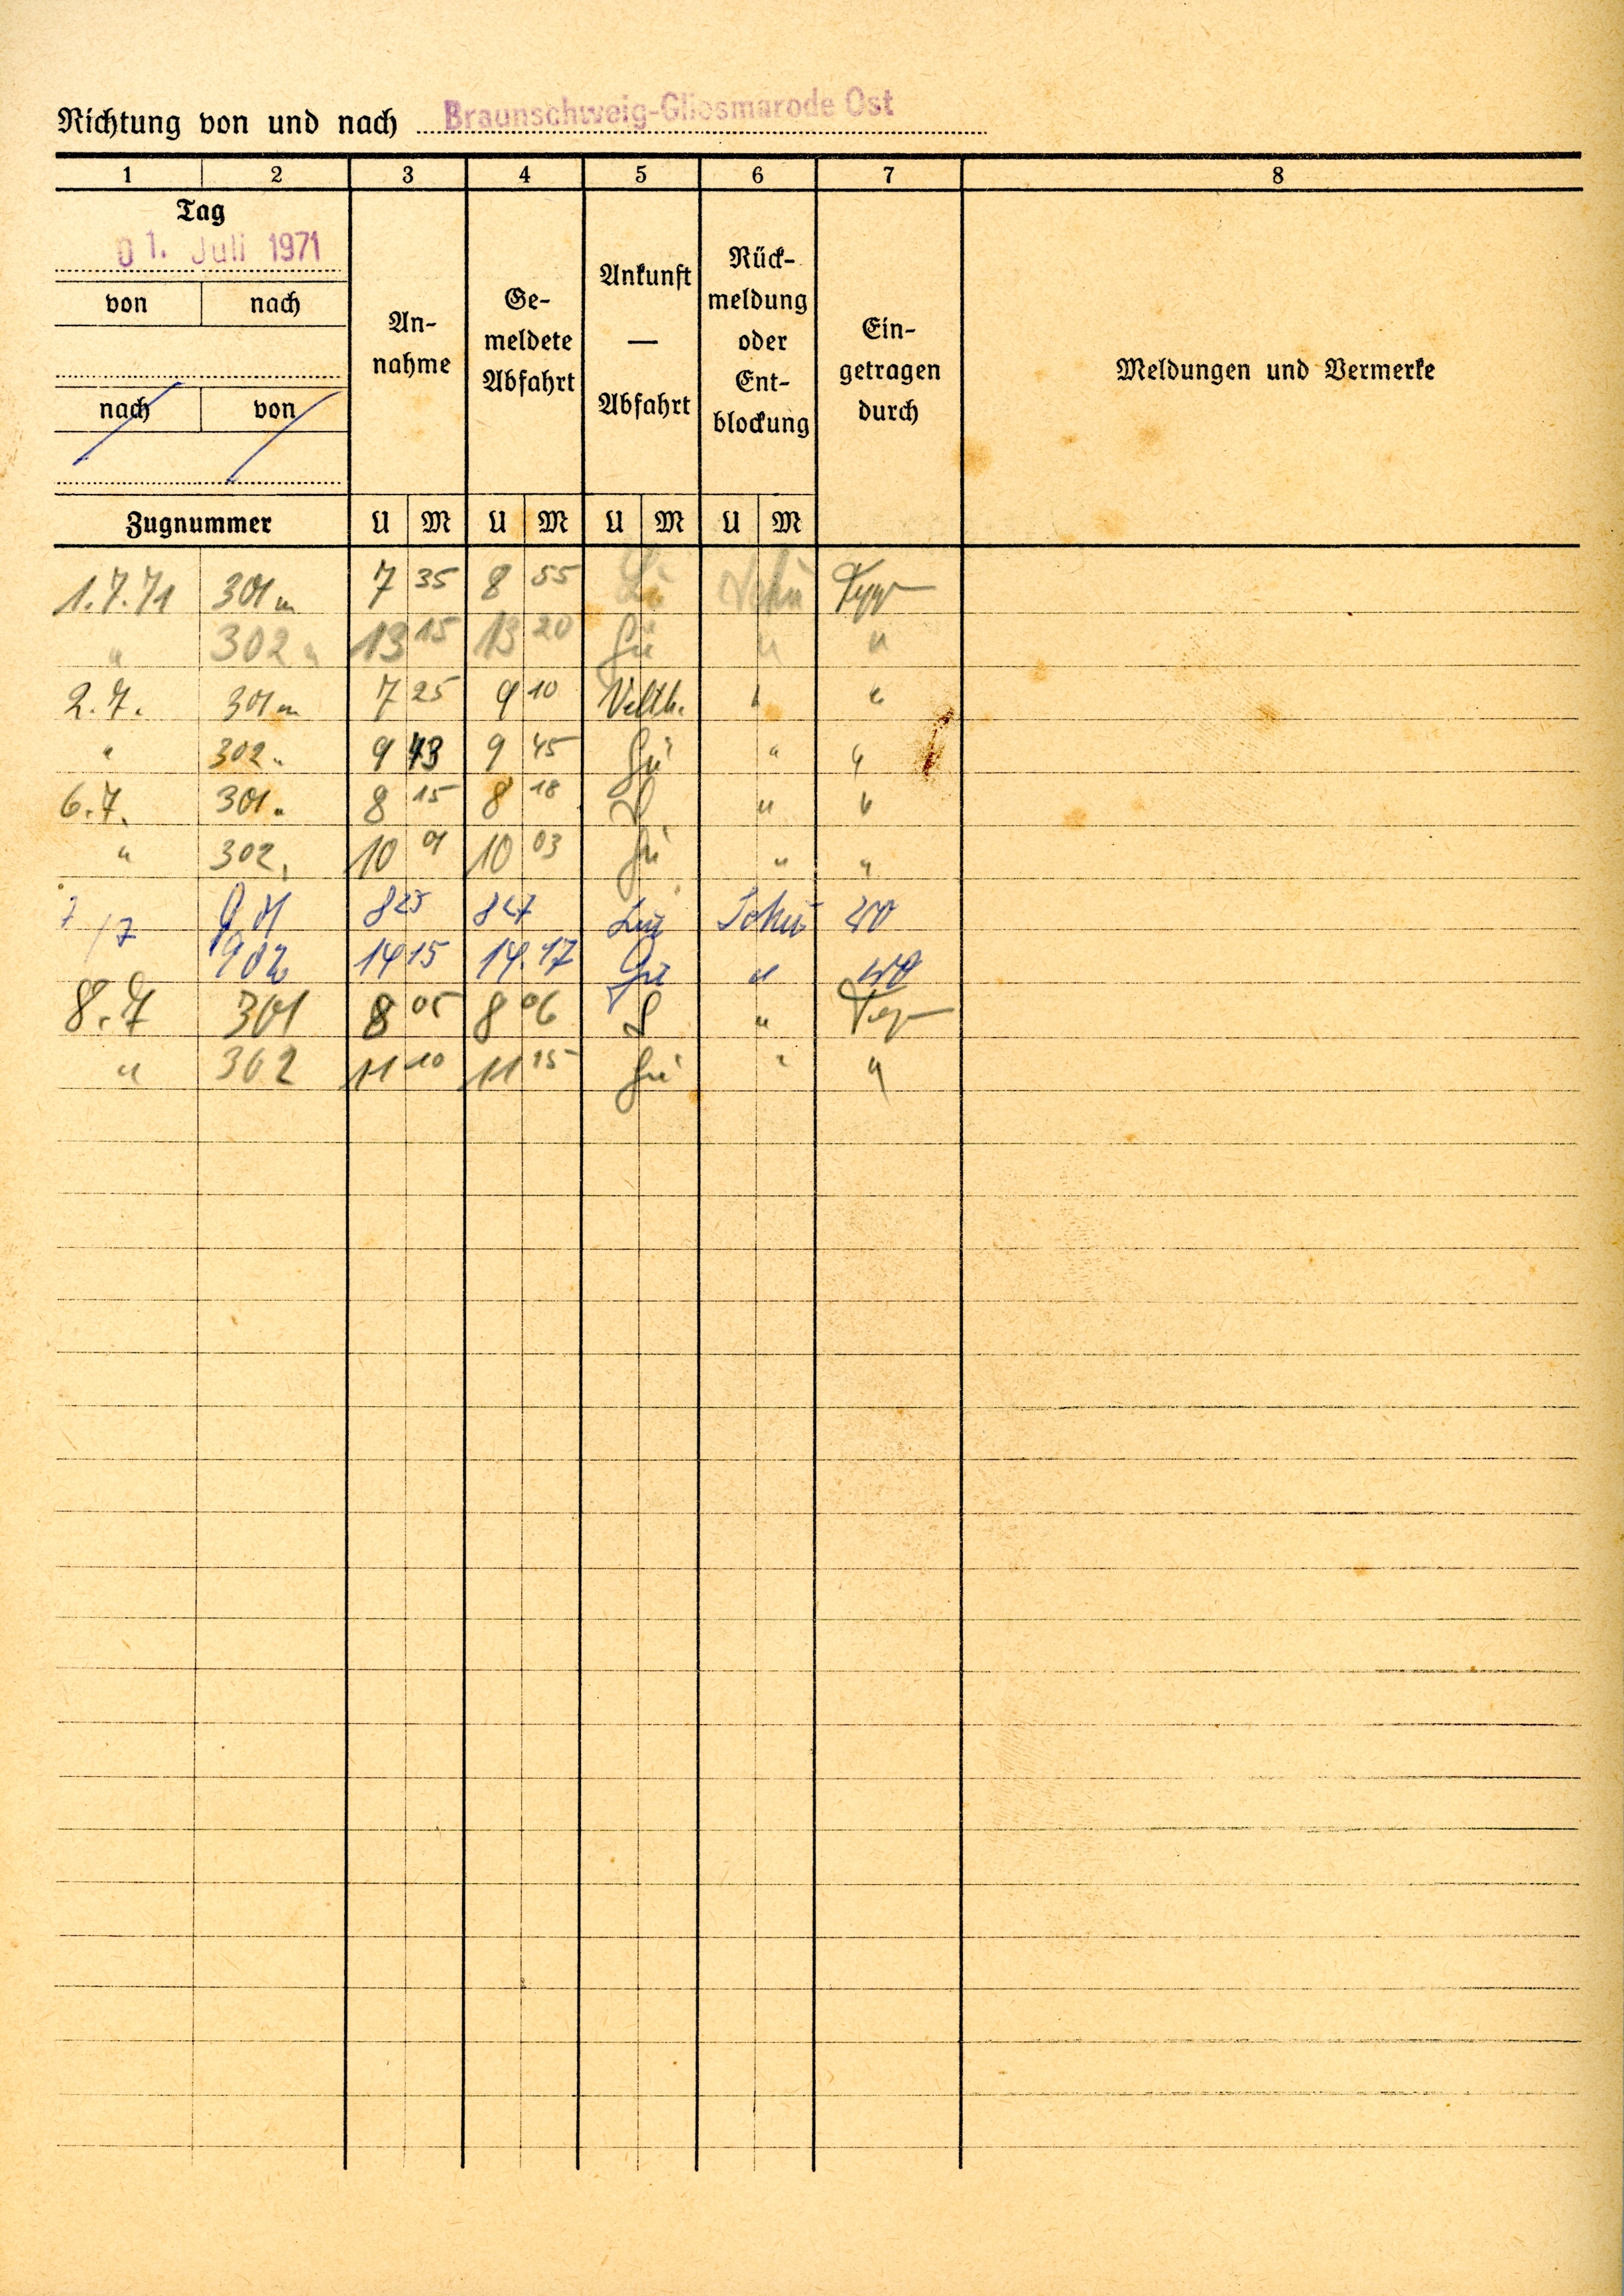 Richtung von und nach Braunschweig-Gliesmarode Ost
1 2 3 4 5 6 7 8
Tag
01. Juli 1971
von nach
nach von
Zugnummer
An-
nahme
Ge-
meldete
Abfahrt
Ankunft
—
Abfahrt
Rück-
meldung
oder
Ent-
blockung
Ein-
getragen
durch
Meldungen und Vermerke
U M U M U M U M
1.7.71 301 7 35 8 55
" 302 " 13 15 13 20 Gü " "
2.7. 301 7 25 9 10 Velth. " "
" 302 " 9 43 9 45 Gü " "
6.7. 301 " 8 15 8 18 " "
" 302 10 01 10 03 Gü " "
7/7 901 8 25 8 27
902 14 15 14.17 Gü "
8.7 301 8 05 8 06 "
" 302 11 10 11 15 Gü " "